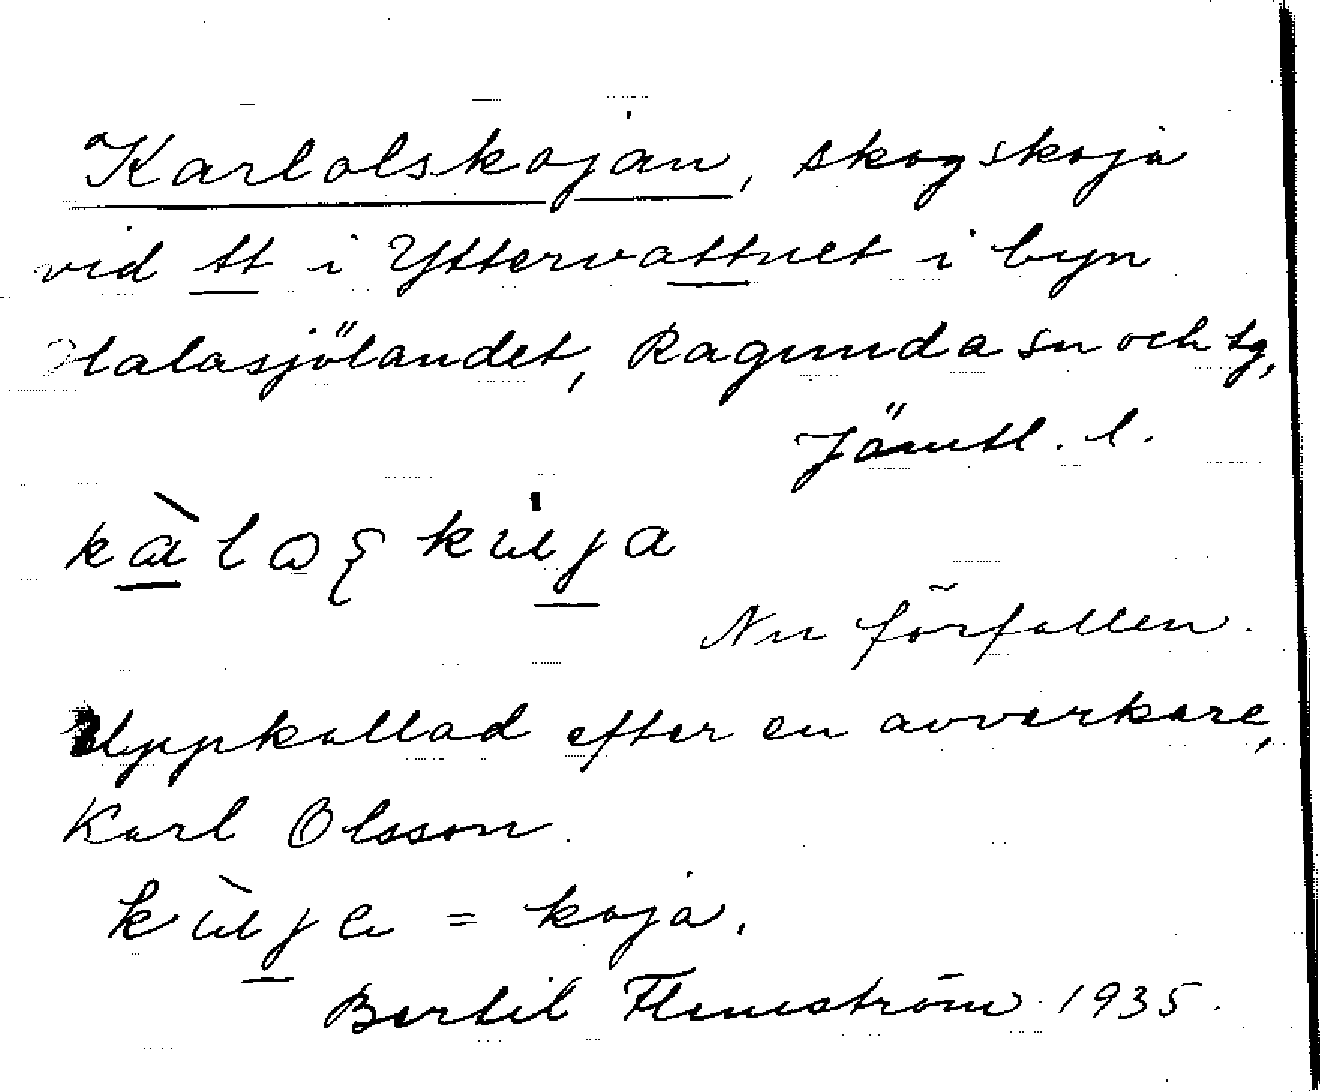 Karlolskojan, skogskoja
vid tt i Yttervattnet i byn
Halasjölandet, Ragunda sn och tg,
Jämtl. l.
Nu förfallen.
Uppkallad efter en avverkare,
Karl Olsson.
= koja.
Bertil Flemström 1935.